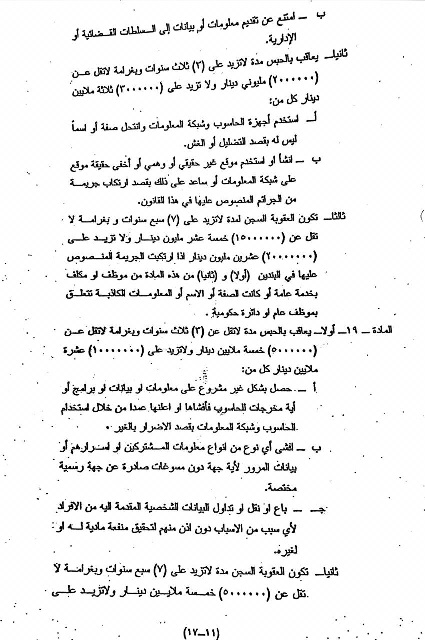 ب ـ امتنع عن تقديم معلومات أو بيانات إلى السلطات القضائية أو
الإدارية.
ثانيا ـ يعاقب بالحبس مدة لاتزيد على (٣) ثلاث سنوات وبغرامة لاتقل عن
(٢٠٠٠٠٠٠) مليوني دينار ولا تزيد على (٣٠٠٠٠٠٠) ثلاثة ملايين
دينار كل من:
أ ـ استخدم أجهزة الحاسوب وشبكة المعلومات وانتحل صفة أو اسماً
ليس له بقصد التضليل أو الغش.
ب ـ انشأ او استخدم موقع غير حقيقي أو وهمي أو أخفى حقيقة موقع
على شبكة المعلومات أو ساعد على ذلك بقصد ارتكاب جريمة
من الجرائم المنصوص عليها في هذا القانون.
ثالثا ـ تكون العقوبة السجن لمدة لاتزيد على (٧) سبع سنوات و بغرامة لا
تقل عن (١٥٠٠٠٠٠٠) خمسة عشر مليون دينار ولا تزيد على
(٢٠٠٠٠٠٠٠) عشرين مليون دينار اذا ارتكبت الجريمة المنصوص
عليها في البندين (أولا) و (ثانيا) من هذه المادة من موظف او مكلف
بخدمة عامة أو كانت الصفة أو الاسم أو المعلومات الكاذبة تتعلق
بموظف عام او دائرة حكومية.
المادة ـ ١٩ ـ أولا ـ يعاقب بالحبس مدة لاتقل عن (٣) ثلاث سنوات وبغرامة لاتقل عن
(٥٠٠٠٠٠٠) خمسة ملايين دينار ولاتزيد على (١٠٠٠٠٠٠٠) عشرة
ملايين دينار كل من:
أ ـ حصل بشكل غير مشروع على معلومات او بيانات او برامج أو
أية مخرجات للحاسوب فأفشاها او اعلنها عمدا من خلال استخدام
الحاسوب وشبكة المعلومات بقصد الاضرار بالغير.
ب ـ افشى أي نوع من انواع معلومات المشتركين او اسرارهم أو
بيانات المرور لأية جهة دون مسوغات صادرة عن جهة رسمية
مختصة.
جـ ـ باع او نقل او تداول البيانات الشخصية المقدمة اليه من الافراد
لأي سبب من الاسباب دون اذن منهم لتحقيق منفعة مادية له او
لغيره.
ثانيا ـ تكون العقوبة السجن مدة لاتزيد على (٧) سبع سنوات وبغرامة لا
تقل عن (٥٠٠٠٠٠٠) خمسة ملايين دينار ولاتزيد على
(١١ـ١٧)